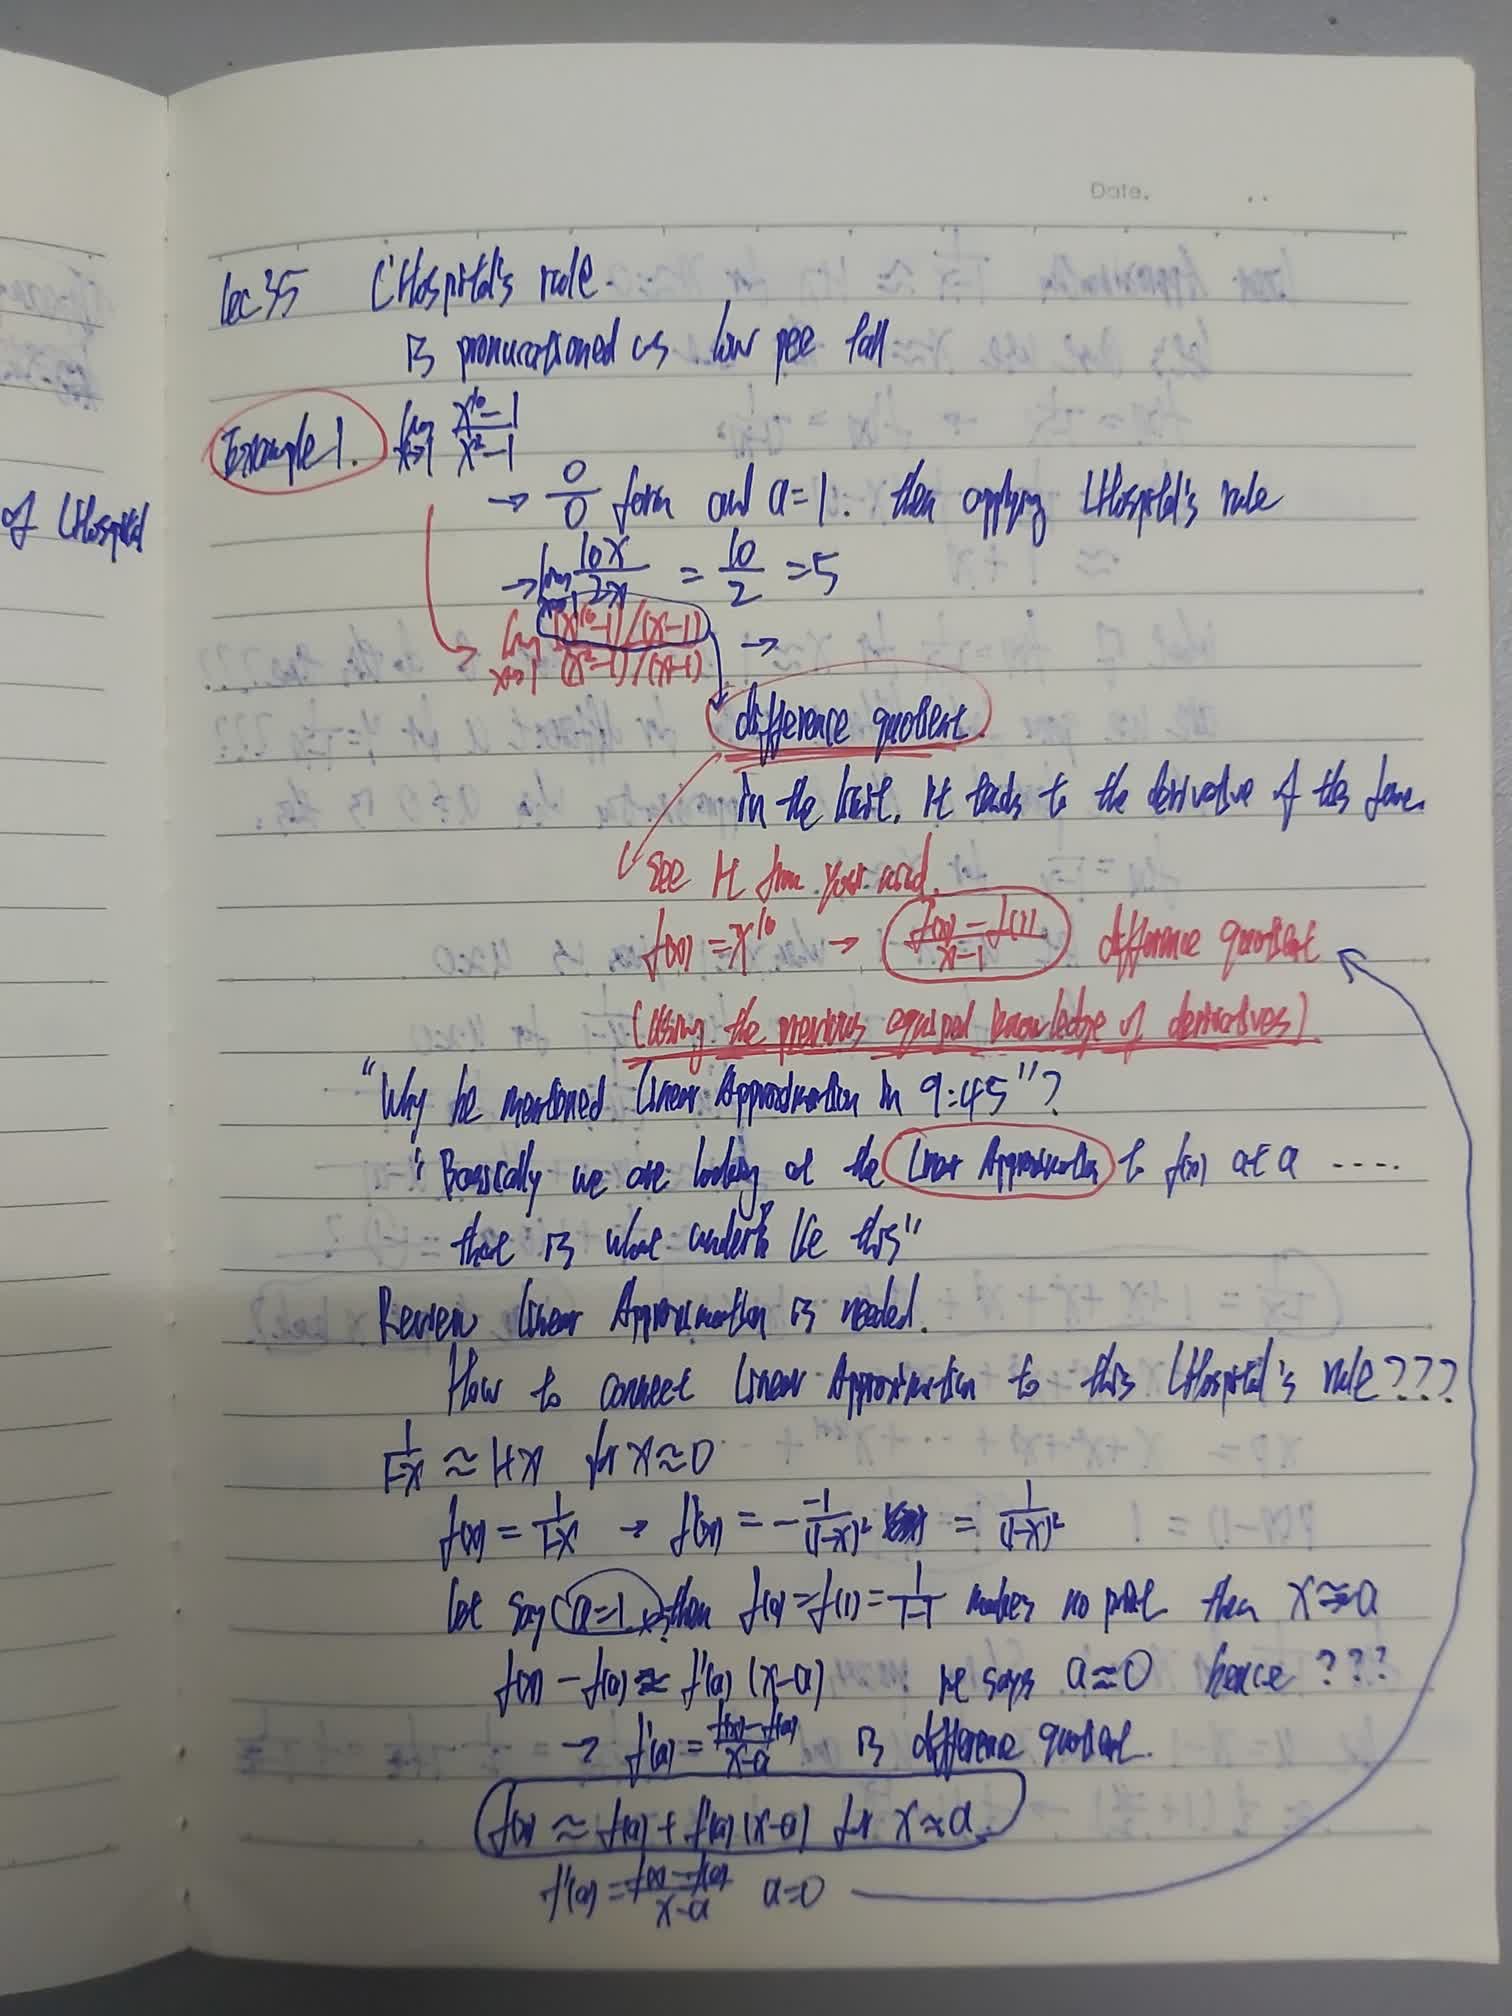 Date.
of L'Hospital
Lec 35 L'Hospital's rule.
is pronunationed as low pee tall
Example 1. lim x→1 x^10-1 / x^2-1
→ 0/0 form and a=1. then applying L'Hospital's rule
→ lim x→1 10x / 2x = 10/2 = 5
lim x→1 (x^10-1)/(x-1) / (x^2-1)/(x-1) →
difference quotient
in the limit. it tends to the derivative of the
see it from your mind.
f(x) = x^10 → f(x)-f(1) / x-1 difference quotient
(Using the previous equiped knowledge of derivatives)
"Why he mentioned Linear Approximation in 9:45"?
"Bascically we are looking at the Linear Approximation to f(x) at a ....
that is what this"
Review Linear Approximation is needed.
How to connect Linear Approximation to this L'Hospital's rule???
1/1-x ≈ 1+x for x≈0
f(x) = 1/1-x → f'(x) = - -1/(1-x)² = 1/(1-x)²
Let say a=1, then f(a) = f(1) = 1/1-1 makes no point then x≈a
f(x) - f(a) ≈ f'(a) (x-a) He says a≈0 hence ???
→ f'(a) = f(x)-f(a) / x-a is difference quotient.
f(x) ≈ f(a) + f'(a) (x-a) for x≈a
f'(a) = f(x)-f(a) / x-a a=0